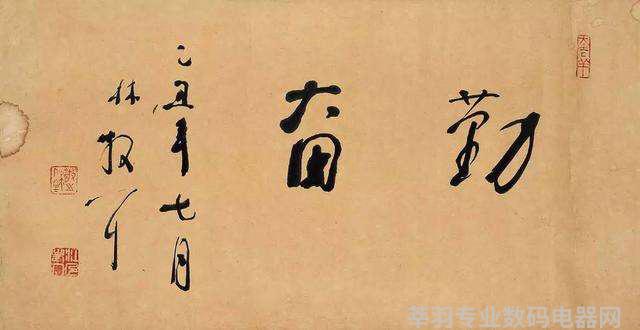 勤奋
乙丑年七月
林散耳
莘羽专业数码电器网